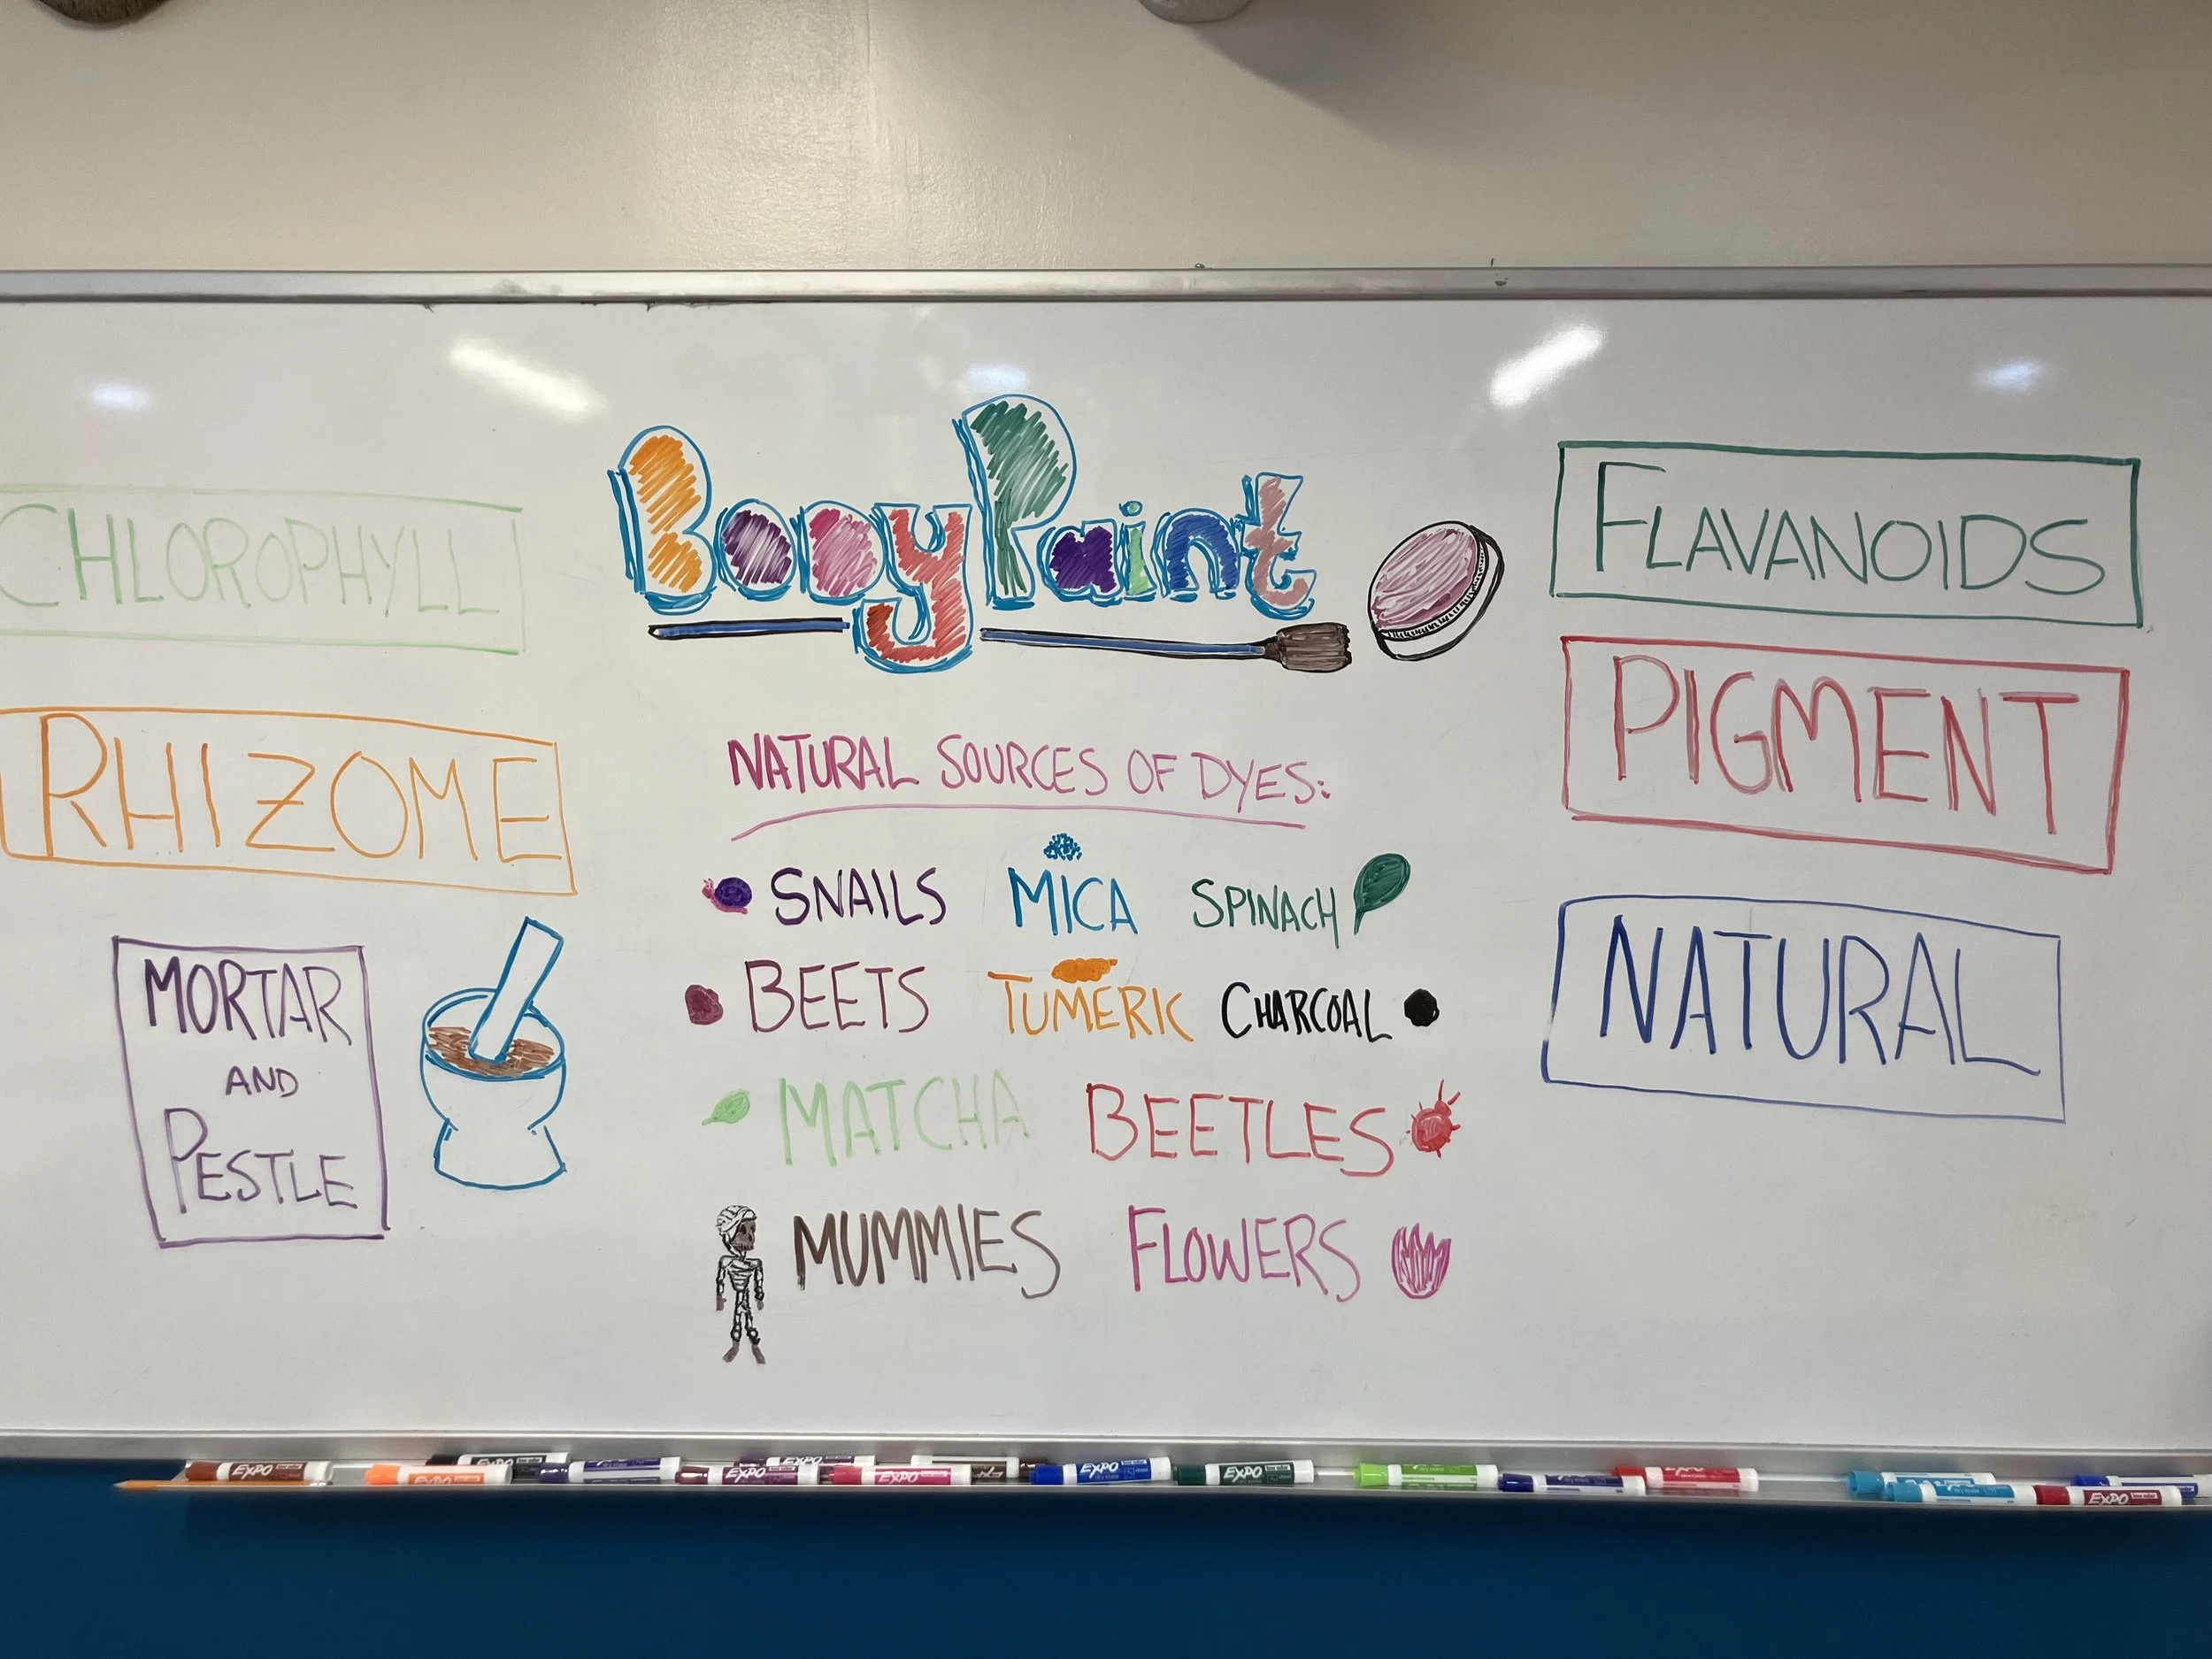 Body Paint
CHLOROPHYLL
RHIZOME
MORTAR
AND
PESTLE
NATURAL SOURCES OF DYES:
SNAILS MICA SPINACH
BEETS TUMERIC CHARCOAL
MATCHA BEETLES
MUMMIES FLOWERS
FLAVANOIDS
PIGMENT
NATURAL
EXPO
EXPO
EXPO
EXPO
EXPO
EXPO
EXPO